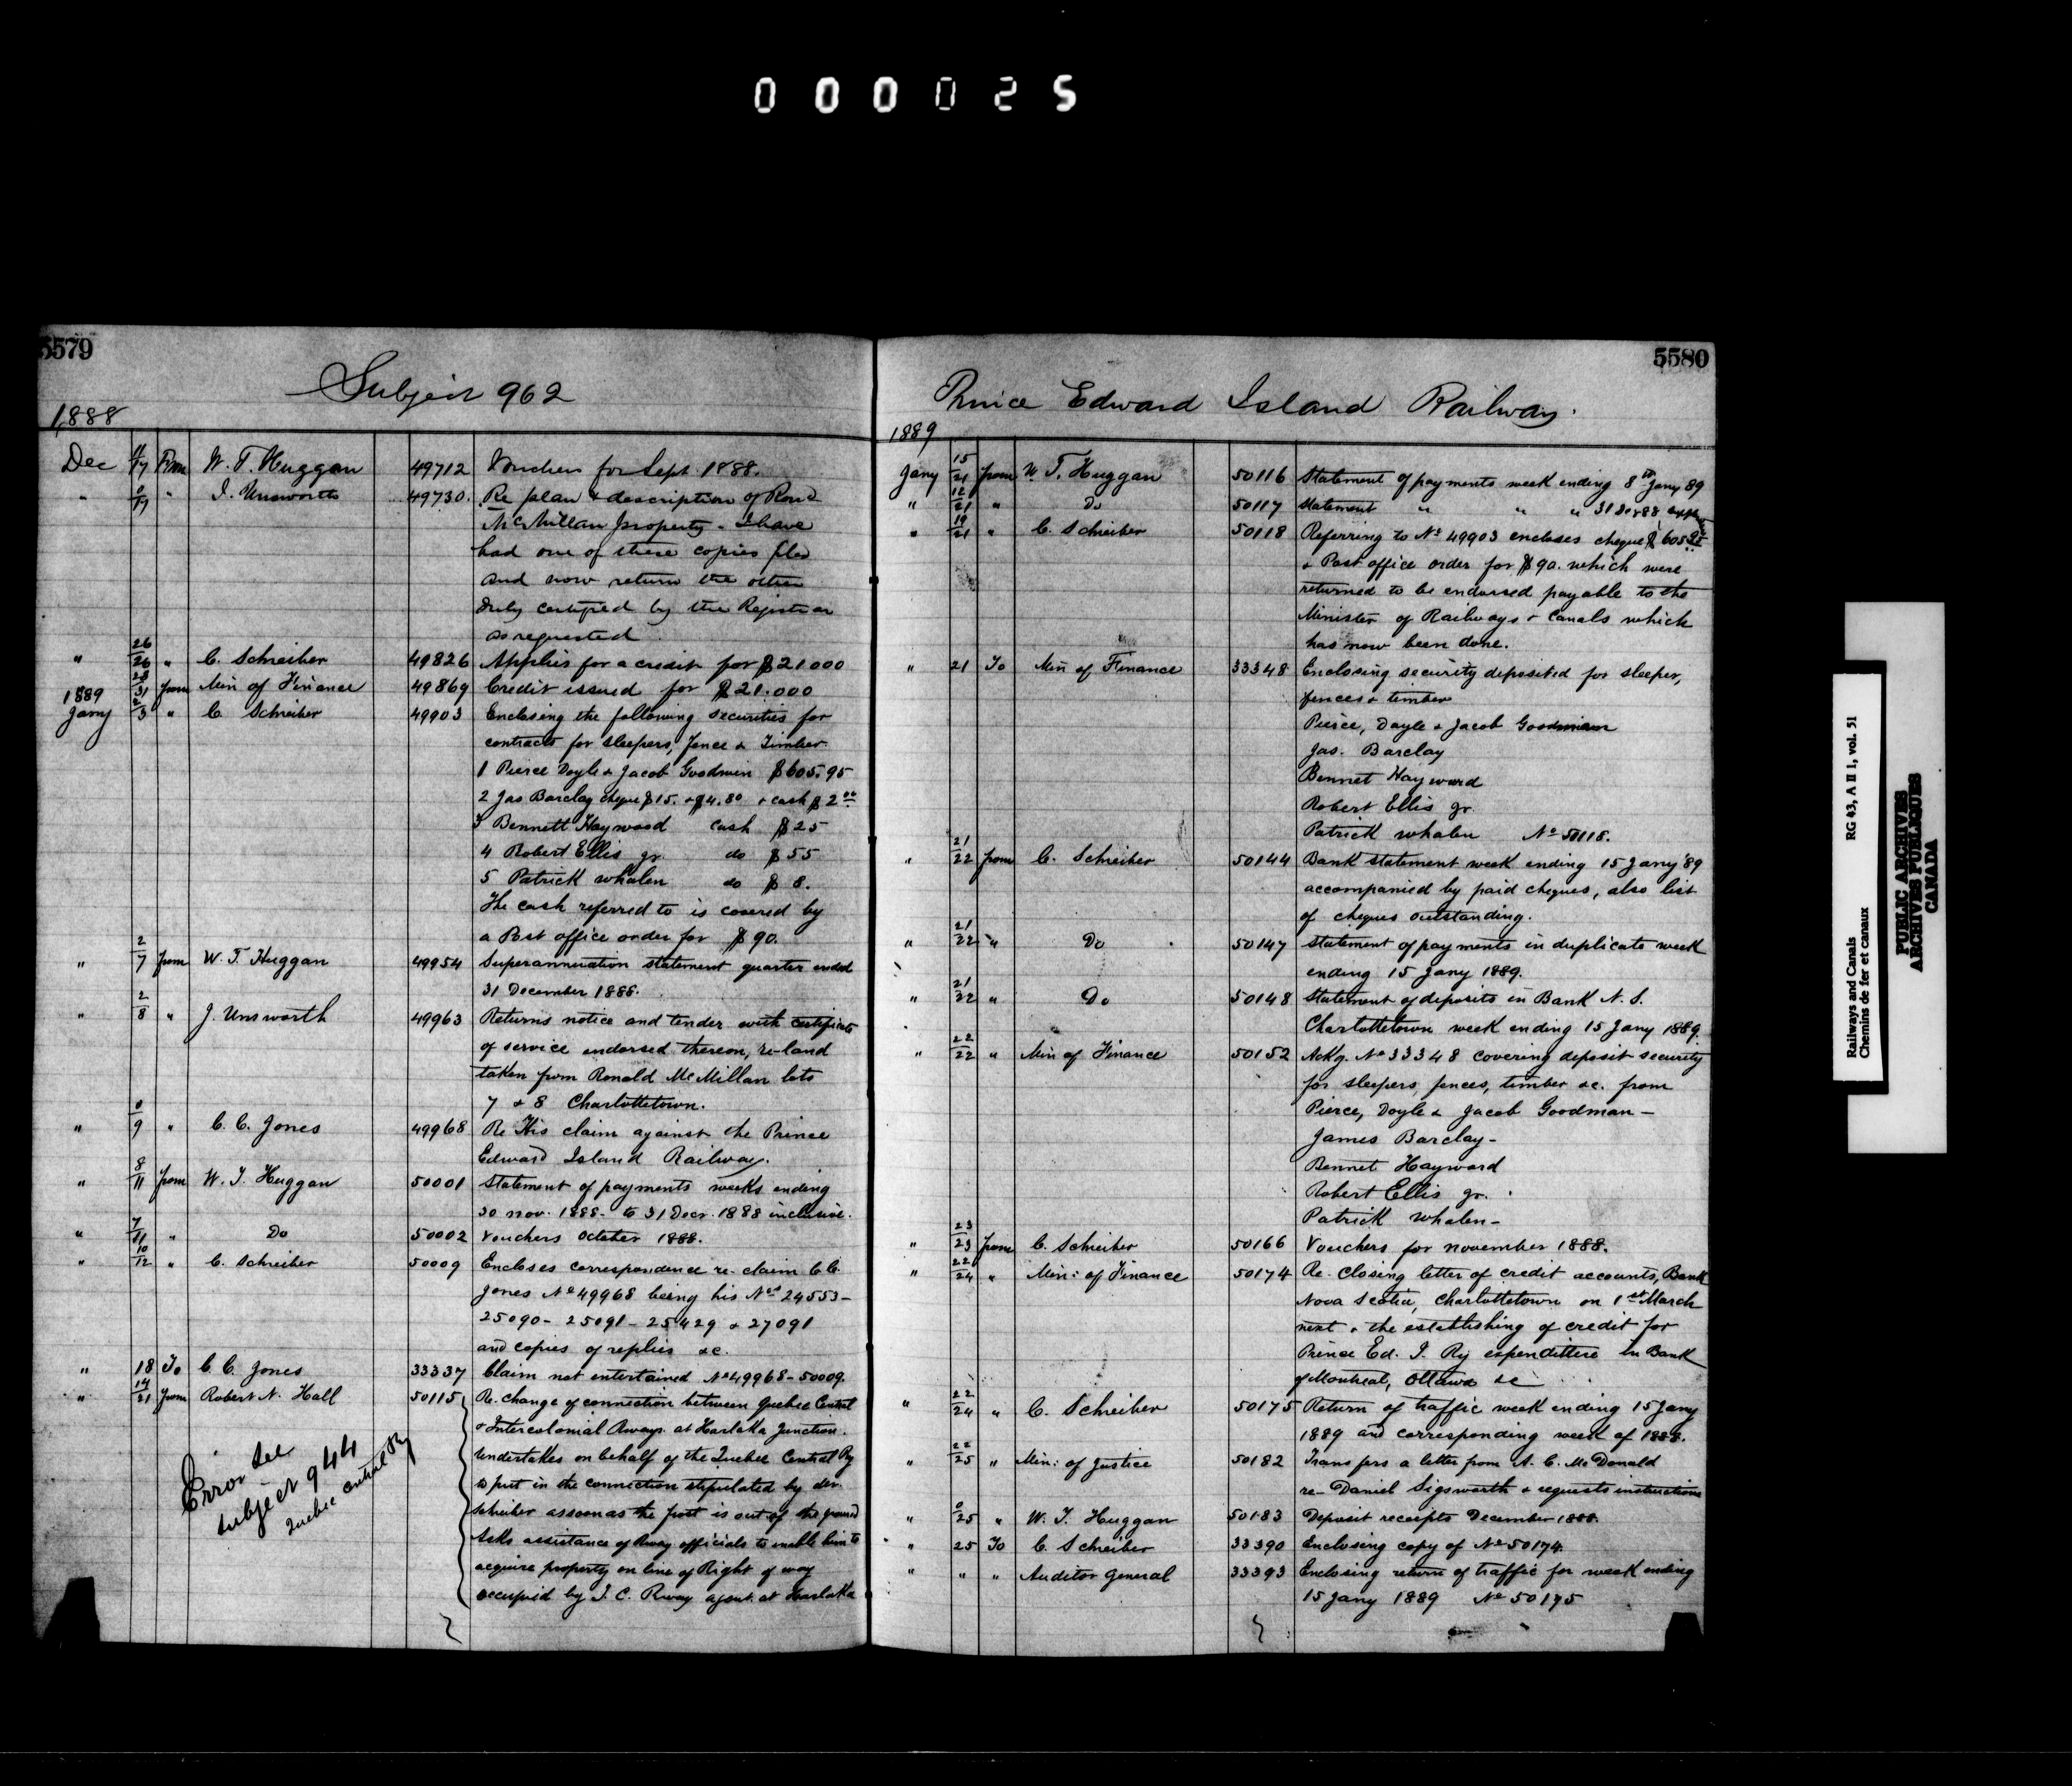 000025
5579
Subject 962
1888
Dec 11/17 From W. T. Huggan 49712 Vouchers for Sept 1888.
" 0/17 " J. Unsworth 49730. Re plan & description of Rond
McMillan property - I have
had one of these copies filed
and now return the other
duly certified by the Registrar
as requested.
" 26/26 " C. Schreiber 49826 Applies for a credit for $21.000
28/31 from Min of Finance 49869 Credit issued for $21.000
1889
Jany 2/3 " C Schreiber 49903 Enclosing the following securities for
contracts for sleepers, fence & Timber
1 Pierce Doyle & Jacob Goodwin $605.95
2 Jas Barclay cheque $15. + $4.80 + cash $2.00
3 Bennett Haywood cash $25
4 Robert Ellis Jr. do $55
5 Patrick Whalen do $8.
The cash referred to is covered by
a Post office order for $90.
" 2/7 from W. T. Huggan 49954 Superannuation statement quarter ended
31 December 1888.
" 2/8 " J. Unsworth 49963 Returns notice and tender with certificate
of service endorsed thereon, re-land
taken from Ronald McMillan lots
7 & 8 Charlottetown.
" 0/9 " C. C. Jones 49968 Re His claim against the Prince
Edward Island Railway.
" 8/11 from W. T. Huggan 50001 Statement of payments weeks ending
30 Nov. 1888 - to 31 Decr. 1888 inclusive.
" 7/11 " Do 50002 Vouchers October 1888.
" 10/12 " C. Schreiber 50009 Encloses correspondence re- claim C.C.
Jones No 49968 being his Nos 24553 -
25090 - 25091 - 25429 & 27091
and copies of replies &c.
" 18 To C. C. Jones 33337 Claim not entertained No 49968 - 50009.
" 14/21 from Robert N. Hall 50115 Re. change of connection between Quebec Central
& Intercolonial Rways. at Harlaka Junction.
Undertakes on behalf of the Quebec Central Ry
to put in the connection stipulated by Mr.
Schreiber as soon as the frost is out of the ground
Asks assistance of Rway officials to enable him to
acquire property on line of Right of way
occupied by I. C. Rway agent at Harlaka
Error see
Subject 944
Quebec Central Ry
5580
Prince Edward Island Railway.
1889
Jany 15/21 from W. T. Huggan 50116 Statement of payments week ending 8th Jany 89
" 12/21 " Do 50117 Statement " " " 31 Dec 88
" 19/21 " C. Schreiber 50118 Referring to No 49903 encloses cheque $605.95
& Post office order for $90. which were
returned to be endorsed payable to the
Minister of Railways & Canals which
has now been done.
" 21 To Min of Finance 33348 Enclosing security deposited for sleeper,
fences & timber
Pierce, Doyle & Jacob Goodman
Jas. Barclay
Bennet Hayward
Robert Ellis Jr.
Patrick Whalen No 50118.
" 21/22 from C. Schreiber 50144 Bank statement week ending 15 Jany '89
accompanied by paid cheques, also list
of cheques outstanding.
" 21/22 " Do 50147 Statement of payments in duplicate week
ending 15 Jany 1889.
" 21/22 " Do 50148 Statement of deposits in Bank N. S.
Charlottetown week ending 15 Jany 1889.
" 22/22 " Min of Finance 50152 Ackg. No 33348 covering deposit security
for sleepers, fences, timber &c. from
Pierce, Doyle & Jacob Goodman -
James Barclay -
Bennet Hayward
Robert Ellis Jr.
Patrick Whalen -
" 23/23 from C. Schreiber 50166 Vouchers for November 1888.
" 22/24 " Min: of Finance 50174 Re. Closing letter of credit accounts, Bank
Nova Scotia, Charlottetown on 1st March
next & the establishing of credit for
Prince Ed. I. Ry expenditure in Bank
of Montreal, Ottawa &c
" 22/24 " C. Schreiber 50175 Return of traffic week ending 15 Jany
1889 and corresponding week of 1888.
" 22/25 " Min: of Justice 50182 Transfers a letter from A. C. McDonald
re- Daniel Sigsworth & requests instructions
" 0/25 " W. T. Huggan 50183 Deposit receipts December 1888.
" 25 To C. Schreiber 33390 Enclosing copy of No 50174.
" " " Auditor General 33393 Enclosing return of traffic for week ending
15 Jany 1889 No 50175
Railways and Canals RG 43, A II 1, vol. 51
Chemins de fer et canaux
PUBLIC ARCHIVES
ARCHIVES PUBLIQUES
CANADA